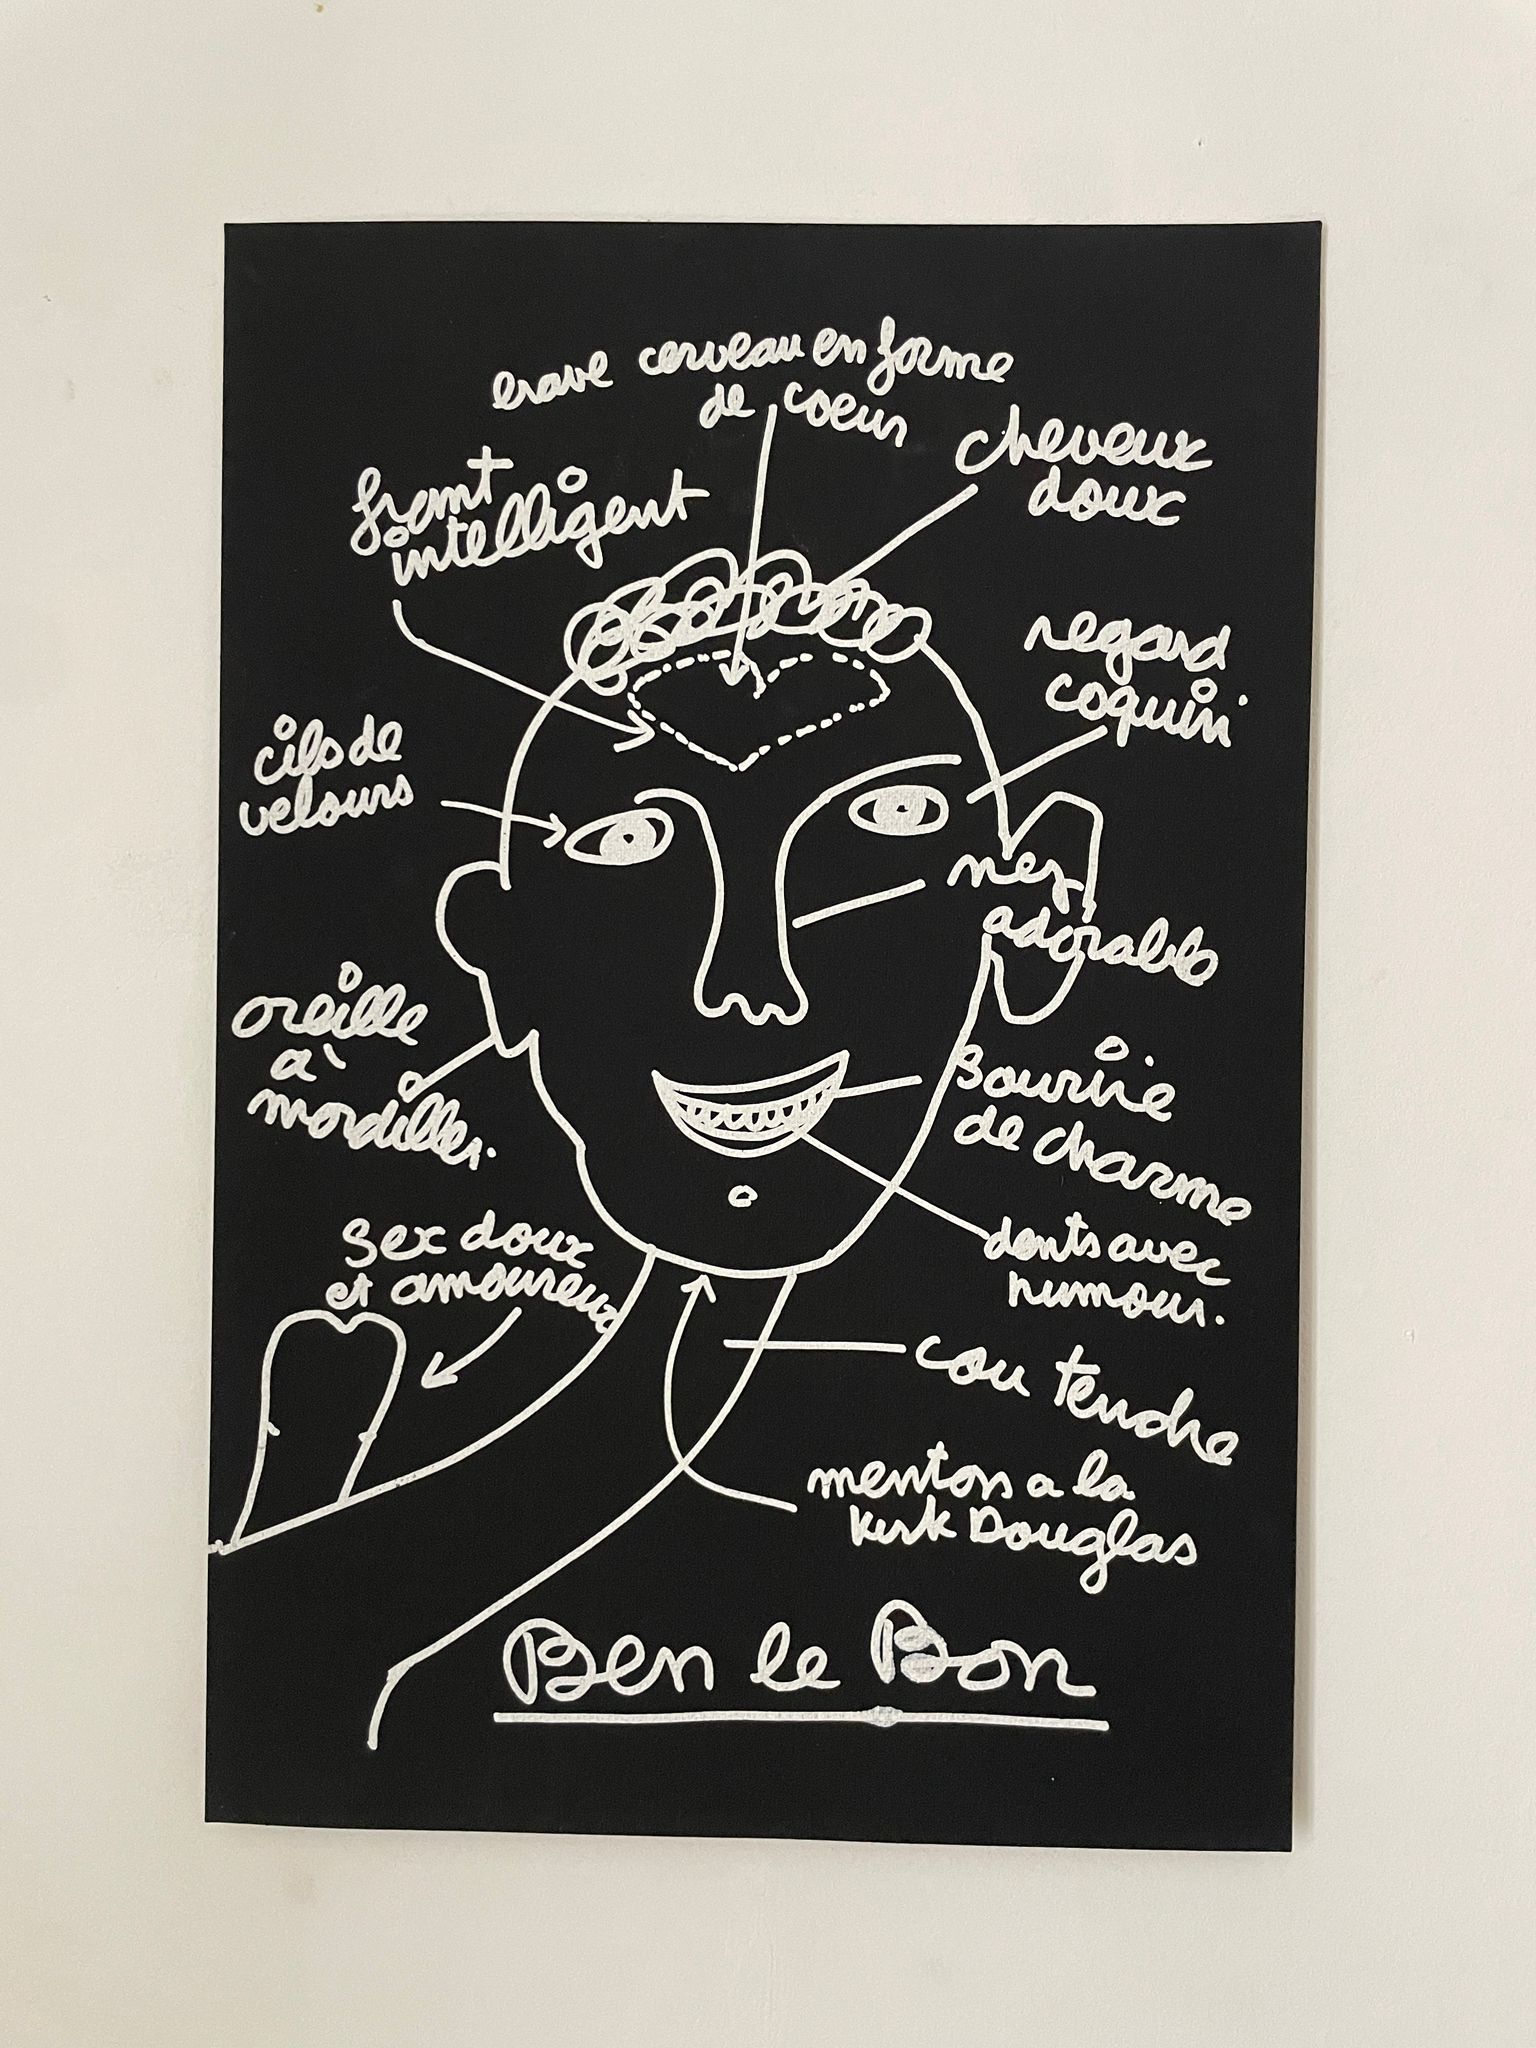 cerveau en forme
de coeur
cheveux
doux
front
intelligent
regard
coquin
cils de
velours
nez
adorable
oreille
à
mordiller.
sourire
de charme
sex doux
et amoureux
dents avec
humour.
cou tendre
menton a la
Kirk Douglas
Ben le Bon